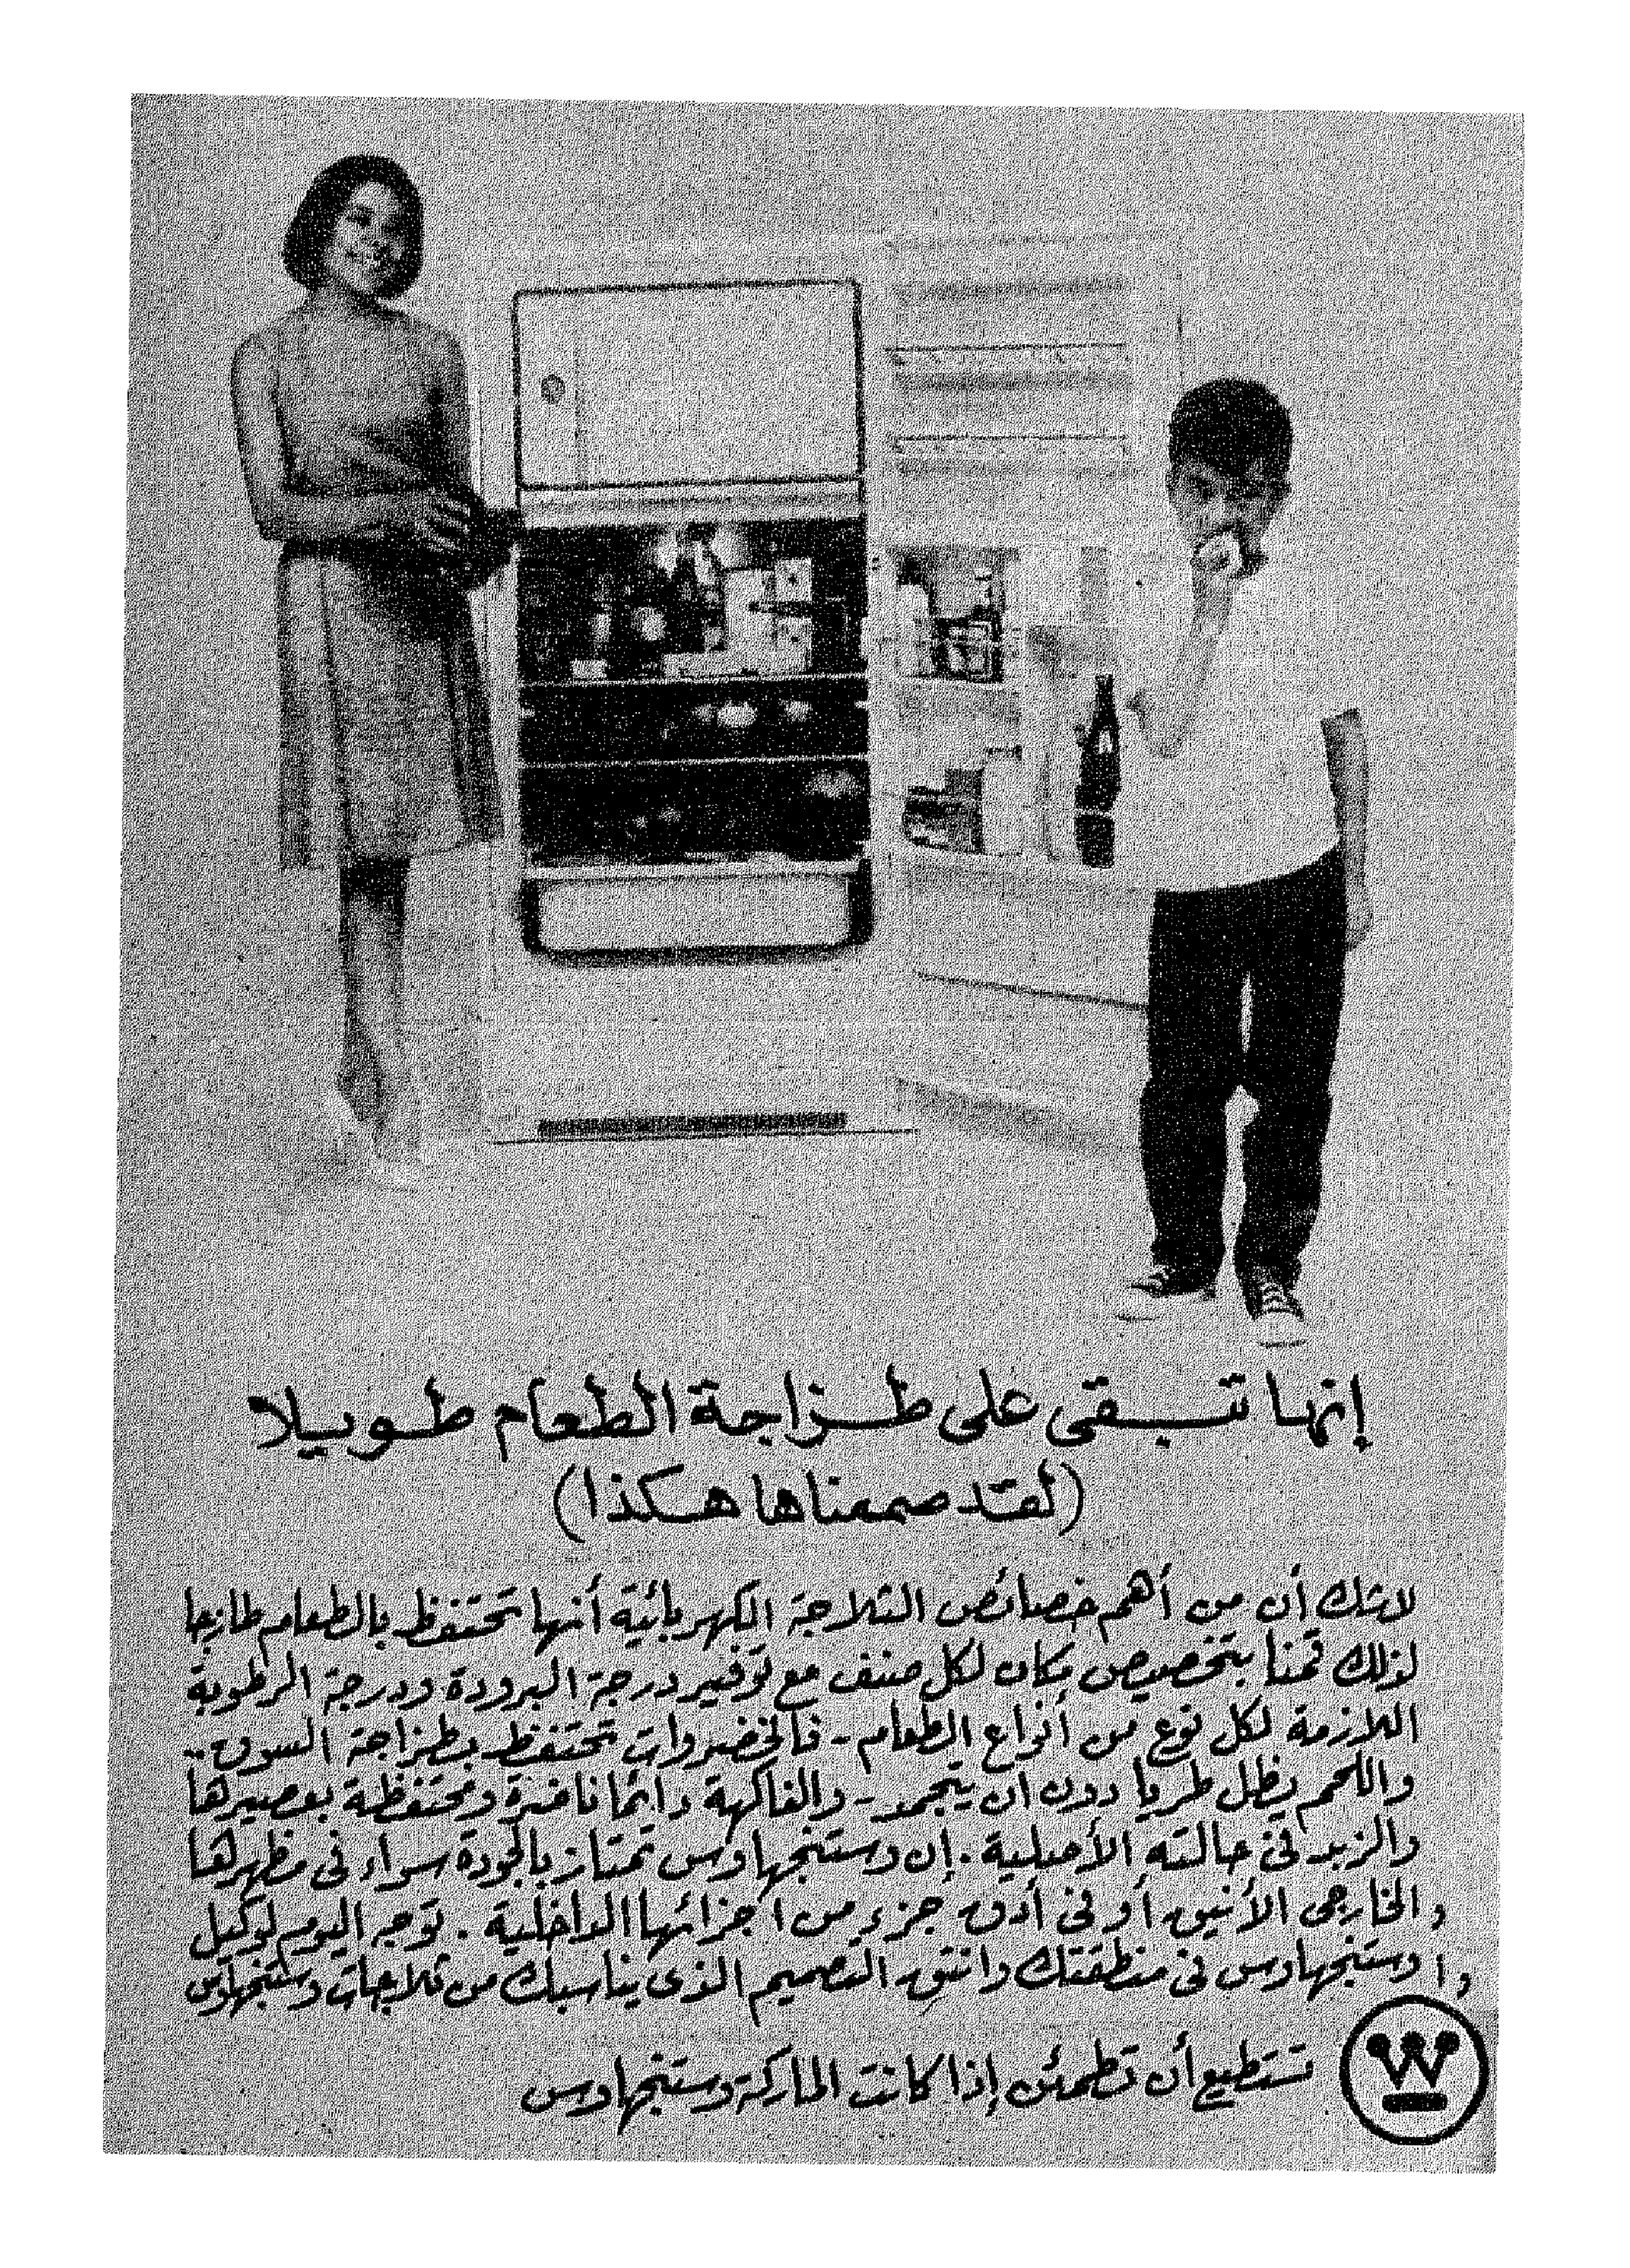 إنها تبقى على طزاجة الطعام طويلا
(لقد صممناها هكذا)
لاشك أن من أهم خصائص الثلاجة الكهربائية أنها تحتفظ بالطعام طازجا
لذلك قمنا بتخصيص مكان لكل صنف مع توفير درجة البرودة ودرجة الرطوبة
اللازمة لكل نوع من أنواع الطعام - فالخضروات تحتفظ بطزاجة السوق ..
واللحم يظل طريا دون أن يتجمد - والفاكهة دائما ناضرة ومحتفظة بعصيرها
والزبد في حالته الأصلية . إن وستنجهاوس تمتاز بالجودة سواء في مظهرها
الخارجي الأنيق أو في أدق جزء من أجزائها الداخلية . توجه اليوم لوكيل
وستنجهاوس في منطقتك وانتق التصميم الذي يناسبك من ثلاجات وستنجهاوس
تستطيع أن تطمئن إذا كانت الماركة وستنجهاوس
W